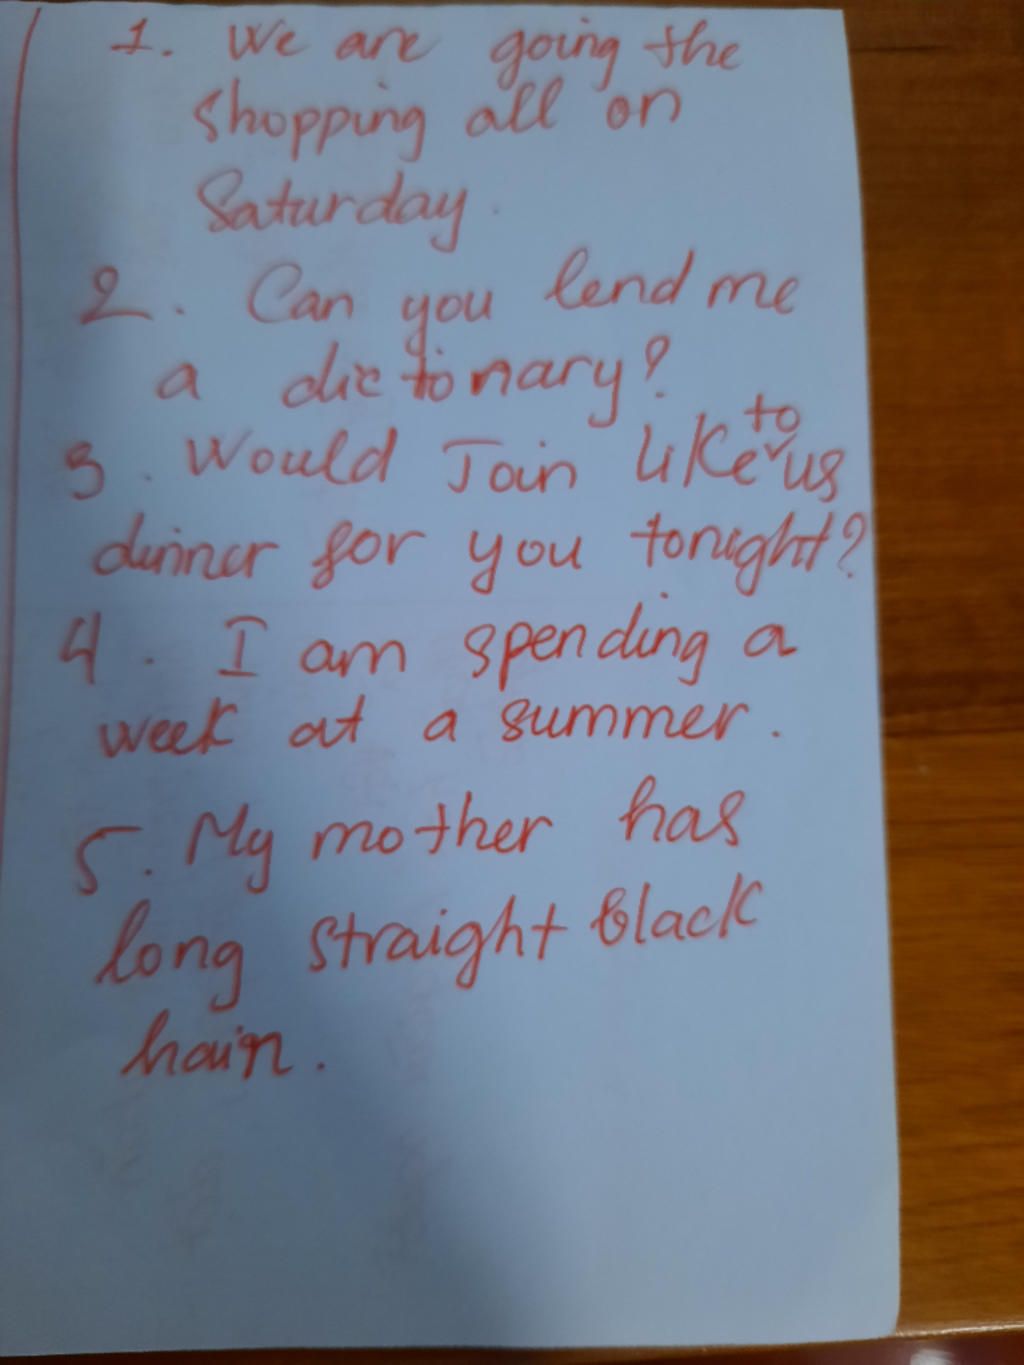 1. We are going the
shopping all on
Saturday.
2. Can you lend me
a dictonary?
3. Would Join like to us
dinner for you tonight?
4. I am spending a
week at a summer.
5. My mother has
long straight black
hair.